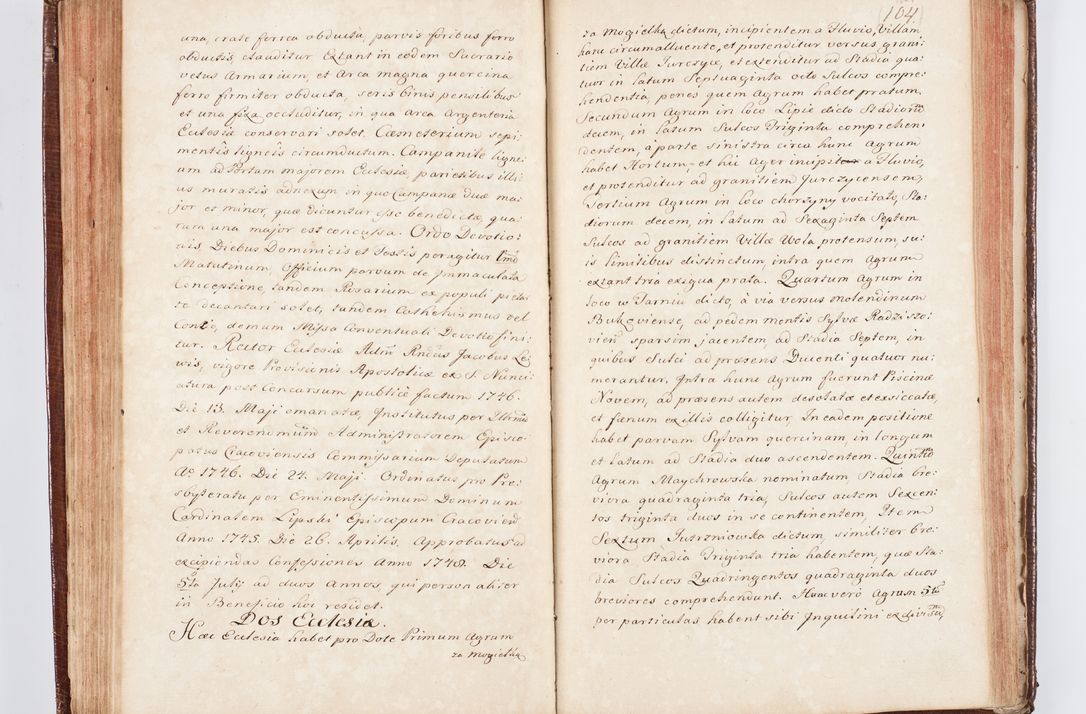 una, crate ferrea obducta, parvis foribus ferro
obductis, clauditur Extant in eodem Sacrario
vetus Armarium, et Arca magna quercina
ferro firmiter obducta, seris binis pensilibus
et una fixa occluditur, in qua Arca Argenteria
Ecclesiæ conservari solet. Cæmeterium sepi:
mentis ligneis circumductum. Campanile ligne:
am ad Portam majorem Ecclesiæ, parietibus illi:
us muratis adnexum in quo Campanæ duæ ma:
jor et minor, quæ dicuntur esse benedictæ, qua:
rum una major est concussa. Ordo Devotio:
nis Diebus Dominicis et Festis peragitur Imo
Matutinum, Officium parvum de Immaculata
Conceptione, tandem Rosarium ex populi pieta:
te decantari solet, tandem Cathechismus vel
Contio, demum Missa Conventuali Devotio fini:
tur. Rector Ecclesiæ Adm Rndus Jacobus Le:
wis, vigore Provisionis Apostolicæ ex S. Nunci:
atura post Concursum publice factum 1746.
Die 13. Maji emanatæ, Institutus per Illrmum
et Reverendmum Administratorem Episco:
patus Cracoviensis Commissarium Deputatum
Ao 1746. Die 24. Maji. Ordinatus pro Pre:
sbyteratu per Eminentissimum Dominum
Cardinalem Lipski Episcopum Cracoviens
Anno 1745. Die 26. Aprilis. Approbatus ad
excipiendas Confessiones Anno 1748. Die
5ta Julij ad duos Annos, qui personaliter
in Beneficio hoc residet.
Dos Ecclesiæ.
Hæc Ecclesia habet pro Dote Primum Agrum
za Mogielką
104.
za Mogielką dictum, incipientem a Fluvio, Villam
hanc circumalluente, et protenditur versus grani:
tiem Villæ Jurczyce, et extenditur ad Stadia qua:
tuor in latum Septuaginta octo Sulcos compre:
hendentia, penes quem Agrum habet pratum.
Secundum Agrum in loco Lipie dicto Stadiorum
decem, in latum Sulcos Triginta comprehen:
dentem, à parte sinistra circa hunc Agrum
habet Hortum, et hic Ager incipit a Fluvio,
et protenditur ad granitiem Jurczycensem,
Tertium Agrum in loco chorzyny vocitato, Sta:
diorum decem, in latum ad Sexaginta Septem
Sulcos ad granitiem Villæ Wola protensum, su:
is limitibus distinctum, intra quem Agrum
extant tria exigua prata. Quartum Agrum in
loco w Tarniu dicto, à via versus molendinum
Bukoviense, ad pedem mentis Sylvæ Radziszo:
viens sparsim jacentem, ad Stadia Septem, in
quibus Sulci ad præsens Ducenti quatuor nu:
merantur. Intra hunc Agrum fuerunt Piscinæ
Novem, ad præsens autem desolatæ et exsiccatæ,
et fænum ex illis colligitur. In eadem positione
habet parvam Sylvam quercinam, in longum
et latum ad Stadia duo ascendentem. Quintum
Agrum Maychrowska nominatum, Stadia bre:
viora quadraginta tria, Sulcos autem Sexcen:
tos triginta duos in se continentem, Item
Sextum Jutrzniowska dictum, similiter bre:
viora Stadia Triginta tria habentem, quæ Sta:
dia Sulcos Quadringentos quadraginta duos
breviores comprehendunt. Hunc verò Agrum 5tum
per particulas habent sibi Inquilini ex divisum